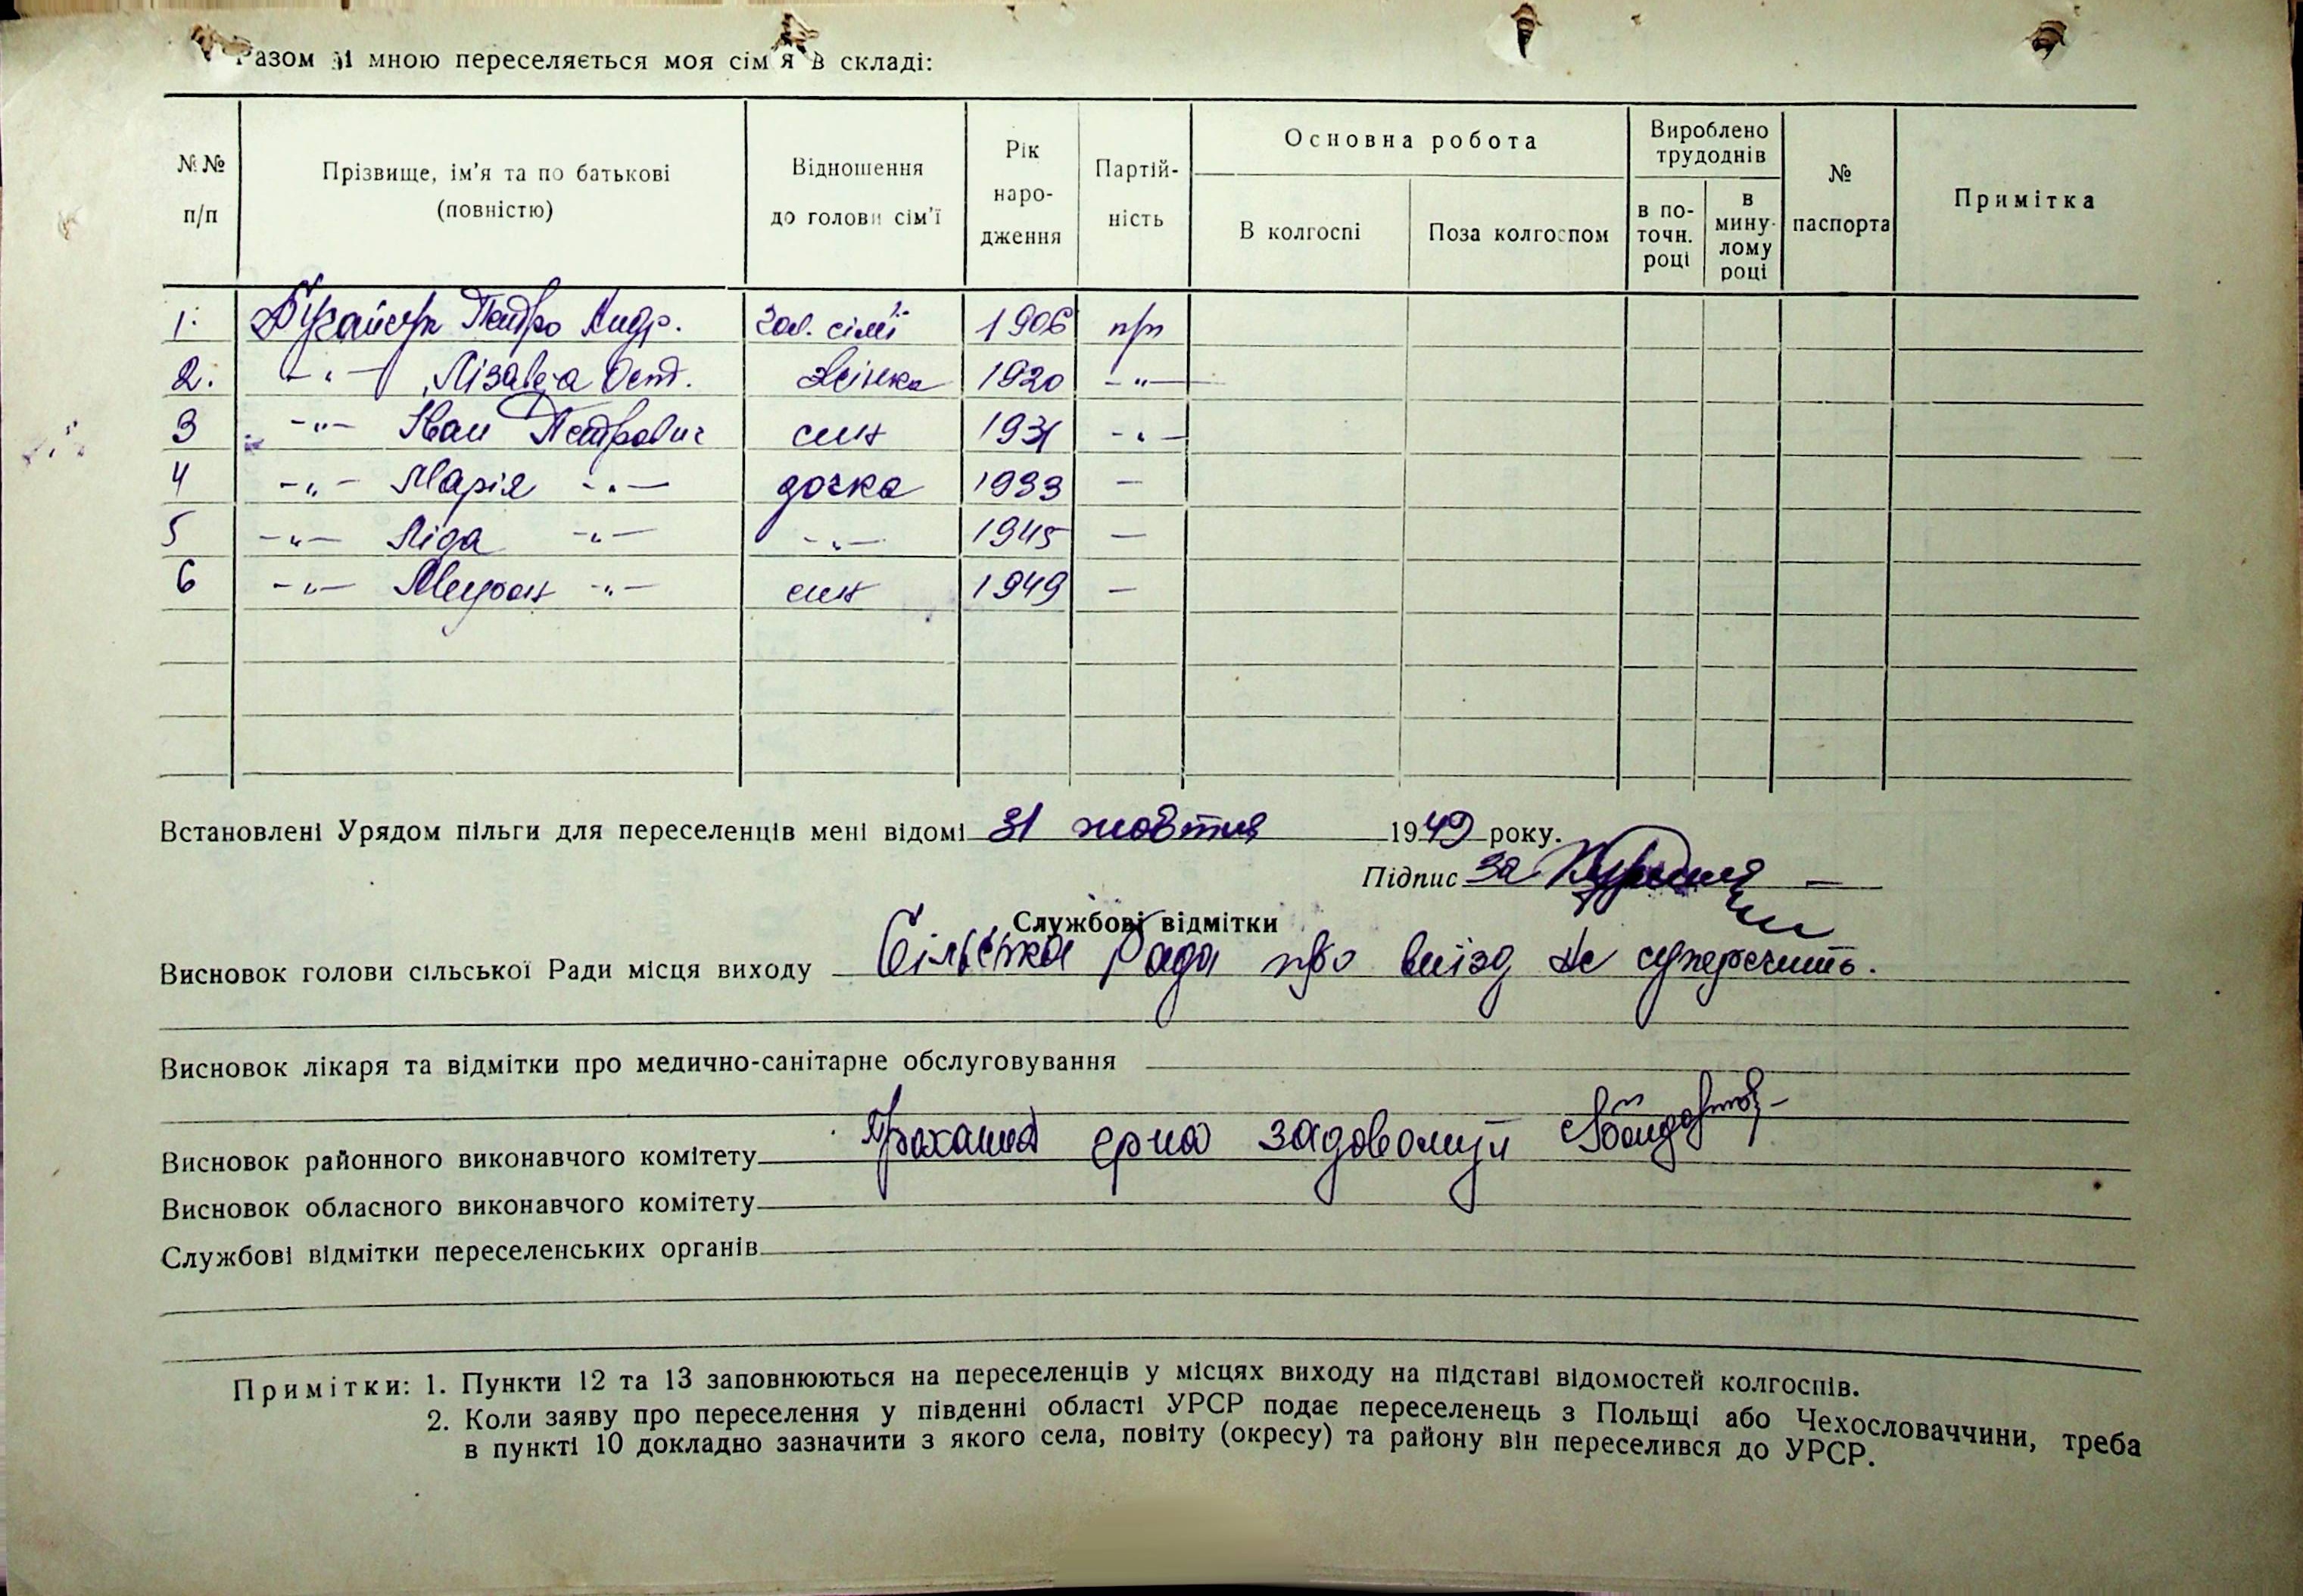 Разом зі мною переселяється моя сім'я в складі:
№№ п/п
Прізвище, ім'я та по батькові (повністю)
Відношення до голови сім'ї
Рік народження
Партійність
Основна робота
В колгоспі
Поза колгоспом
Вироблено трудоднів
в поточн. році
в минулому році
№ паспорта
Примітка
1. Петро Андр. Гол. сім'ї 1906 п/п
2. -"- Лізавета Ост. Жінка 1920 -"-
3 -"- Іван Петрович син 1931 -"-
4 -"- Марія -"- дочка 1933 —
5 -"- Ліда -"- -"- 1945 —
6 -"- син 1949 —
Встановлені Урядом пільги для переселенців мені відомі 31 жовтня 1949 року.
Підпис за
Службові відмітки
Висновок голови сільської Ради місця виходу Сільська рада про виїзд не суперечить.
Висновок лікаря та відмітки про медично-санітарне обслуговування
Висновок районного виконавчого комітету
Висновок обласного виконавчого комітету
Службові відмітки переселенських органів
Примітки: 1. Пункти 12 та 13 заповнюються на переселенців у місцях виходу на підставі відомостей колгоспів.
2. Коли заяву про переселення у південні області УРСР подає переселенець з Польщі або Чехословаччини, треба
в пункті 10 докладно зазначити з якого села, повіту (окресу) та району він переселився до УРСР.